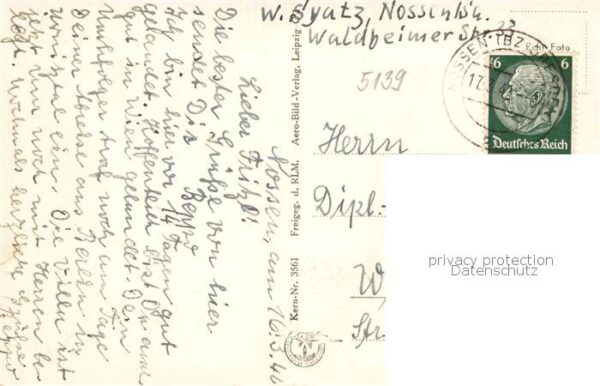 W. Syatz, Nossen i/Sa.
Waldheimer Str. 23
Echt Foto
NOSSEN
17.
6 6
Deutsches Reich
5139
Herrn
Dipl.-
W
Str
privacy protection
Datenschutz
Kern-Nr. 3561 Freigeg. d. RLM. Aero-Bild-Verlag, Leipzig
Nossen, am 16.3.40
Lieber Fritzl!
Die besten Grüße von hier
sendet Dir Beppo
Ich bin hier vor 14 Tagen gut
gelandet. Hoffentlich bist Du auch
gut in gelandet. Dein
Nachfolger traf noch am Tage
Deiner Abreise aus Berlin
ein. Die Villen ist
jetzt nur noch mit Herren be-
legt. Nochmals herzliche Grüße
Beppo